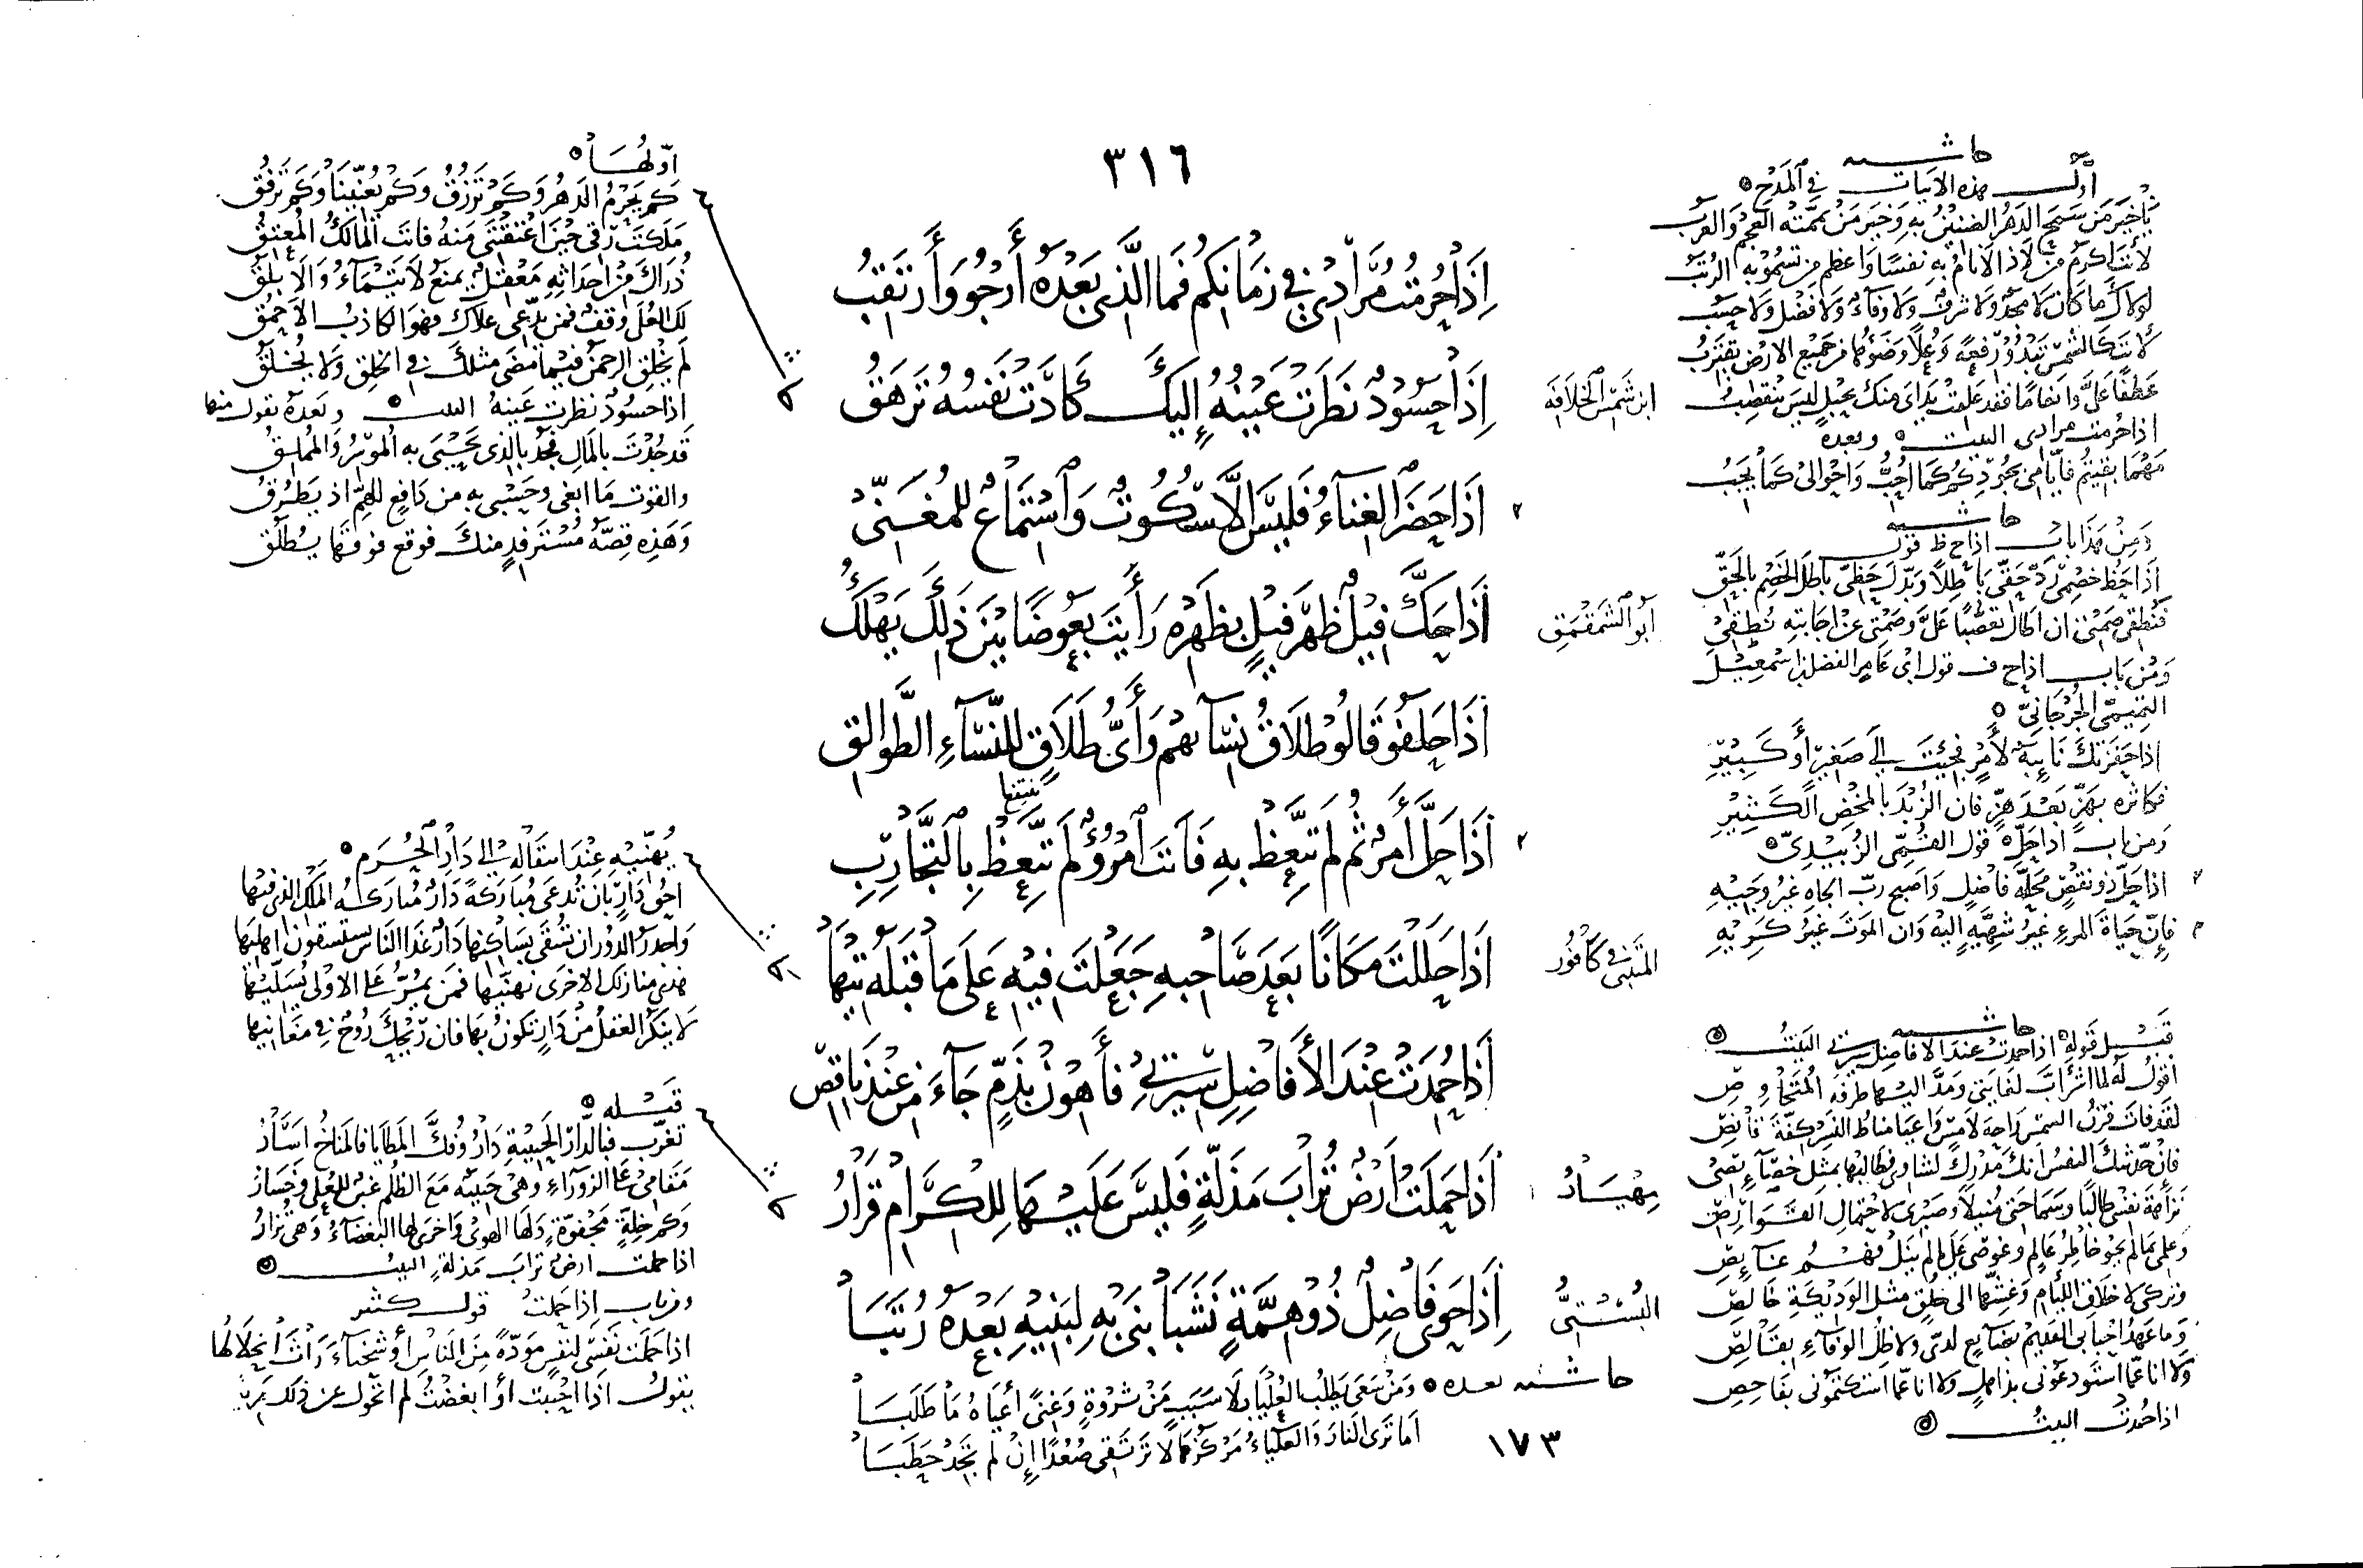 ٣١٦
إِذَا حُرِمْتُ مُرَادِي فِي زَمَانِكُمُ فَمَا الَّذِي بَعْدَهُ أَرْجُو وَأَرْتَقِبُ
ابن شمس الخلافة
إِذَا حَسُودٌ نَظَرَتْ عَيْنُهُ إِلَيْكَ كَادَتْ نَفْسُهُ تَزْهَقُ
إِذَا حَضَرَ الْغِنَاءُ فَلَيْسَ إِلَّا سُكُوتٌ وَاسْتِمَاعٌ لِلْمُغَنِّي
أبو الشمقمق
إِذَا حَكَّ فِيلٌ ظَهْرَ فِيلٍ بِظَهْرِهِ رَأَيْتَ بَعُوضًا بَيْنَ ذَلِكَ يَهْلَكُ
إِذَا حَلَفُوا قَالُوا طَلَاقُ نِسَائِهِمْ وَأَيُّ طَلَاقٍ لِلنِّسَاءِ الطَّوَالِقِ
إِذَا حَلَّ أَمْرٌ ثُمَّ لَمْ تَتَّعِظْ بِهِ فَأَنْتَ امْرُؤٌ لَمْ تَتَّعِظْ بِالتَّجَارِبِ
المتنبي في كافور
إِذَا حَلَلْتَ مَكَانًا بَعْدَ صَاحِبِهِ جَعَلْتَ فِيهِ عَلَى مَا قَبْلَهُ تِيهَا
إِذَا حُمِدَتْ عِنْدَ الْأَفَاضِلِ سِيرَتِي فَأَهْوِنْ بِذَمٍّ جَاءَ مِنْ عِنْدِ نَاقِصِ
مهيار
إِذَا حَمَلَتْ أَرْضٌ تُرَابَ مَذَلَّةٍ فَلَيْسَ عَلَيْهَا لِلْكِرَامِ قَرَارُ
البستي
إِذَا حَوَى فَاضِلٌ ذُو هِمَّةٍ نَشَبًا بَنَى بِهِ لِبَنِيهِ بَعْدَهُ رُتَبَا
حاشية بعده وَمَنْ سَعَى يَطْلُبُ الْعُلْيَا بِلَا سَبَبٍ مِنْ ثَرْوَةٍ وَغِنًى أَعْيَاهُ مَا طَلَبَا
أَمَا تَرَى النَّارَ وَالْعَلْيَاءُ مَرْكَزُهَا لَا تَرْتَقِي صُعُدًا إِنْ لَمْ تَجِدْ حَطَبَا
١٧٣
حاشية
أول هذه الأبيات في المدح
يا خير من سمح الدهر الضنين به وخير من يممته العجم والعرب
لأنت أكرم من لاذ الأنام به نفسا وأعظم من تسمو به الرتب
لولاك ما كان لا مجد ولا شرف ولا وفاء ولا فضل ولا حسب
لأنت كالشمس تبدو رفعة وعلا وضوءها من جميع الأرض يقترب
عطفا علي وإنعاما فقد علقت يداي منك بحبل ليس ينقضب
إذا حرمت مرادي البيت وبعده
مهما بقيتم فأيامي بجودكم كما أحب وأحوالي كما يجب
حاشية
ومن هذا باب إذا ح ظ قول
إذا حظ خصمي رد حقي باطلا وبدل حظي باطل الخصم بالحق
فنطقي صمتي إن أطال تعصبا علي وصمتي عن إجابته نطقي
ومن باب إذا ح ف قول أبي عامر الفضل بن إسمعيل
التميمي الجرجاني
إذا حفزتك نائبة لأمر فجئت إلى صغير أو كبير
فكاثره بهز بعد هز فإن الزبد بالمخض الكثير
ومن باب إذا حل قول القشمي الزبيدي
إذا حل ذو نقص محلة فاضل وأصبح رب الجاه غير وجيه
فإن حياة المرء غير شهية إليه وإن الموت غير كريه
حاشية
قبل قوله إذا حمدت عند الأفاضل سيرتي البيت
إذا حمدت البيت
أولها
كم يحرم الدهر وكم ترزق وكم يعنينا وكم ترفق
ملكت رقي حين أعتقتني منه فأنت المالك المعتق
ذراك من أحداثه معقل يمنع لا تيماء والأبلق
لك العلى وقف فمن يدعي علاك فهو الكاذب الأحمق
لم يخلق الرحمن فيما مضى مثلك في الخلق ولا يخلق
إذا حسود نظرت عينه البيت وبعده يقول منها
قد جدت بالمال فجد بالذي يحيى به الموسر والمملق
والقوت ما أبغي وحسبي به من دافع للهم إذ يطرق
وهذه قصة مسترفد منك فوقع فوقها يطلق
يهنيه عند انتقاله إلى دار الحرم
أحق دار بأن تدعى مباركة دار مباركة الملك الذي فيها
وأجدر الدور أن تسقى بساكنها دار غدا الناس يستسقون أهليها
هذي منازلك الأخرى نهنئها فمن يمر على الأولى يسليها
لا ينكر العقل من دار تكون بها فإن ريحك روح في مغانيها
قبله
تغرب فبالدار الحبيبة دار وفك المطايا فالمناخ إسار
مقامي على الزوراء وهي حبيبة مع الظلم غبن للعلى وخسار
وكم خلة مجفوة ولها الهوى وأخرى لها البغضاء وهي تزار
إذا حملت أرض تراب مذلة البيت
ومن باب إذا حملت قول كثير
يقول إذا أحببت أو أبغضت لم أتحول عن ذلك